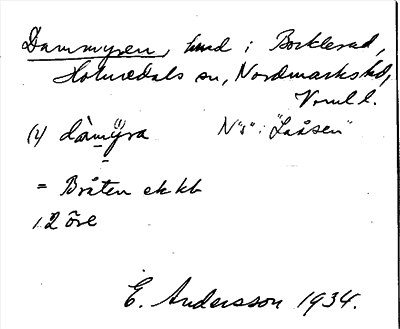 Dammyren, hmd i Bocklerud,
Holmedals sn, Nordmarks hd,
Vrml l.
(1) dàmy̆ra N"5": "Låsen"
= Bråten ek kb
12 öre
E. Andersson 1934.